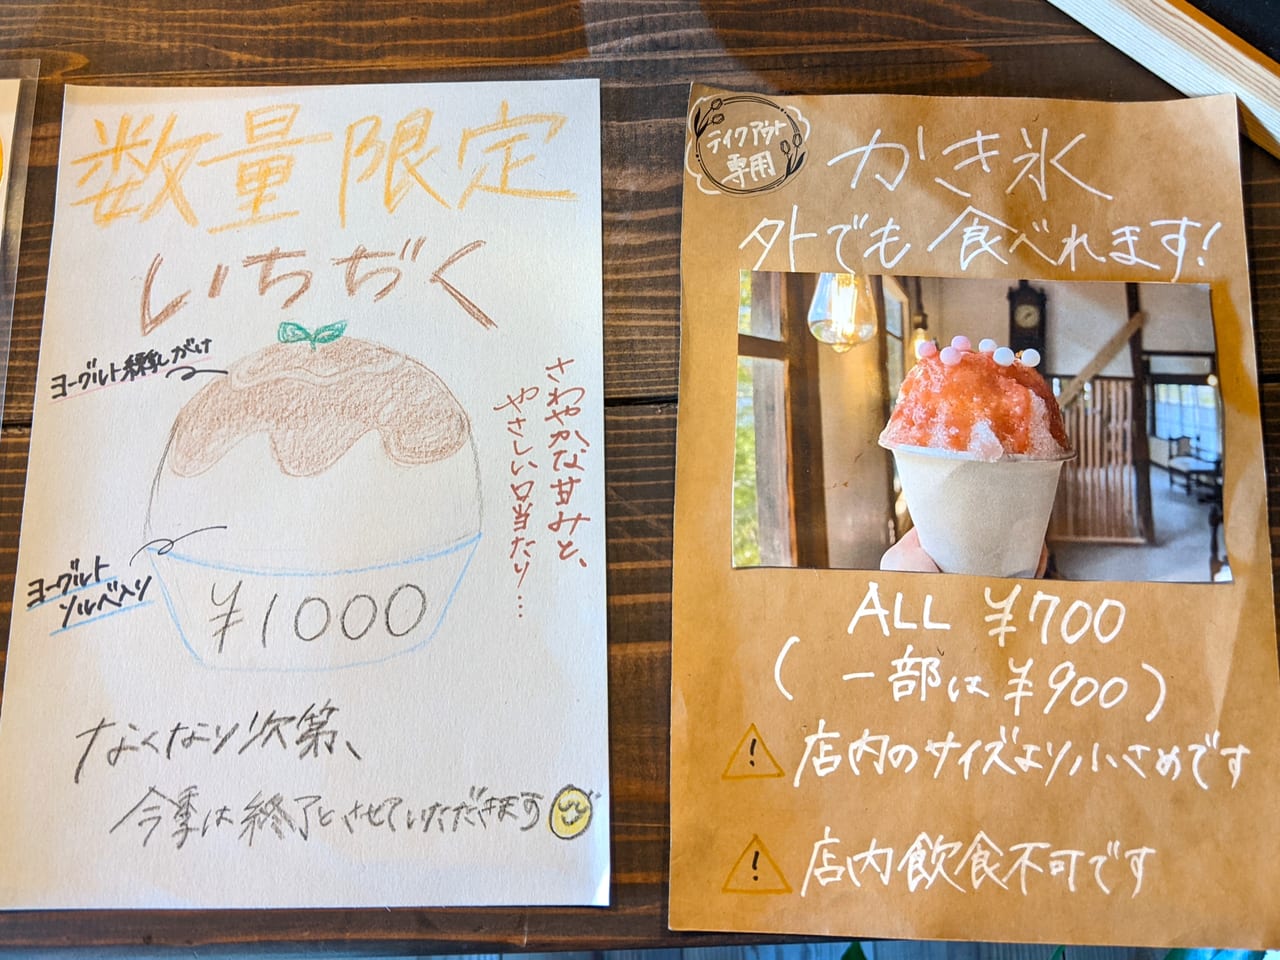 数量限定
いちぢく
ヨーグルト練乳がけ
さわやかな甘みと、
やさしい口当たり…
ヨーグルト
ソルベ入り
¥1000
なくなり次第、
今季は終了とさせていただきます
テイクアウト
専用
かき氷
外でも食べれます!
ALL ¥700
(一部は¥900)
! 店内のサイズより小さめです
! 店内飲食不可です